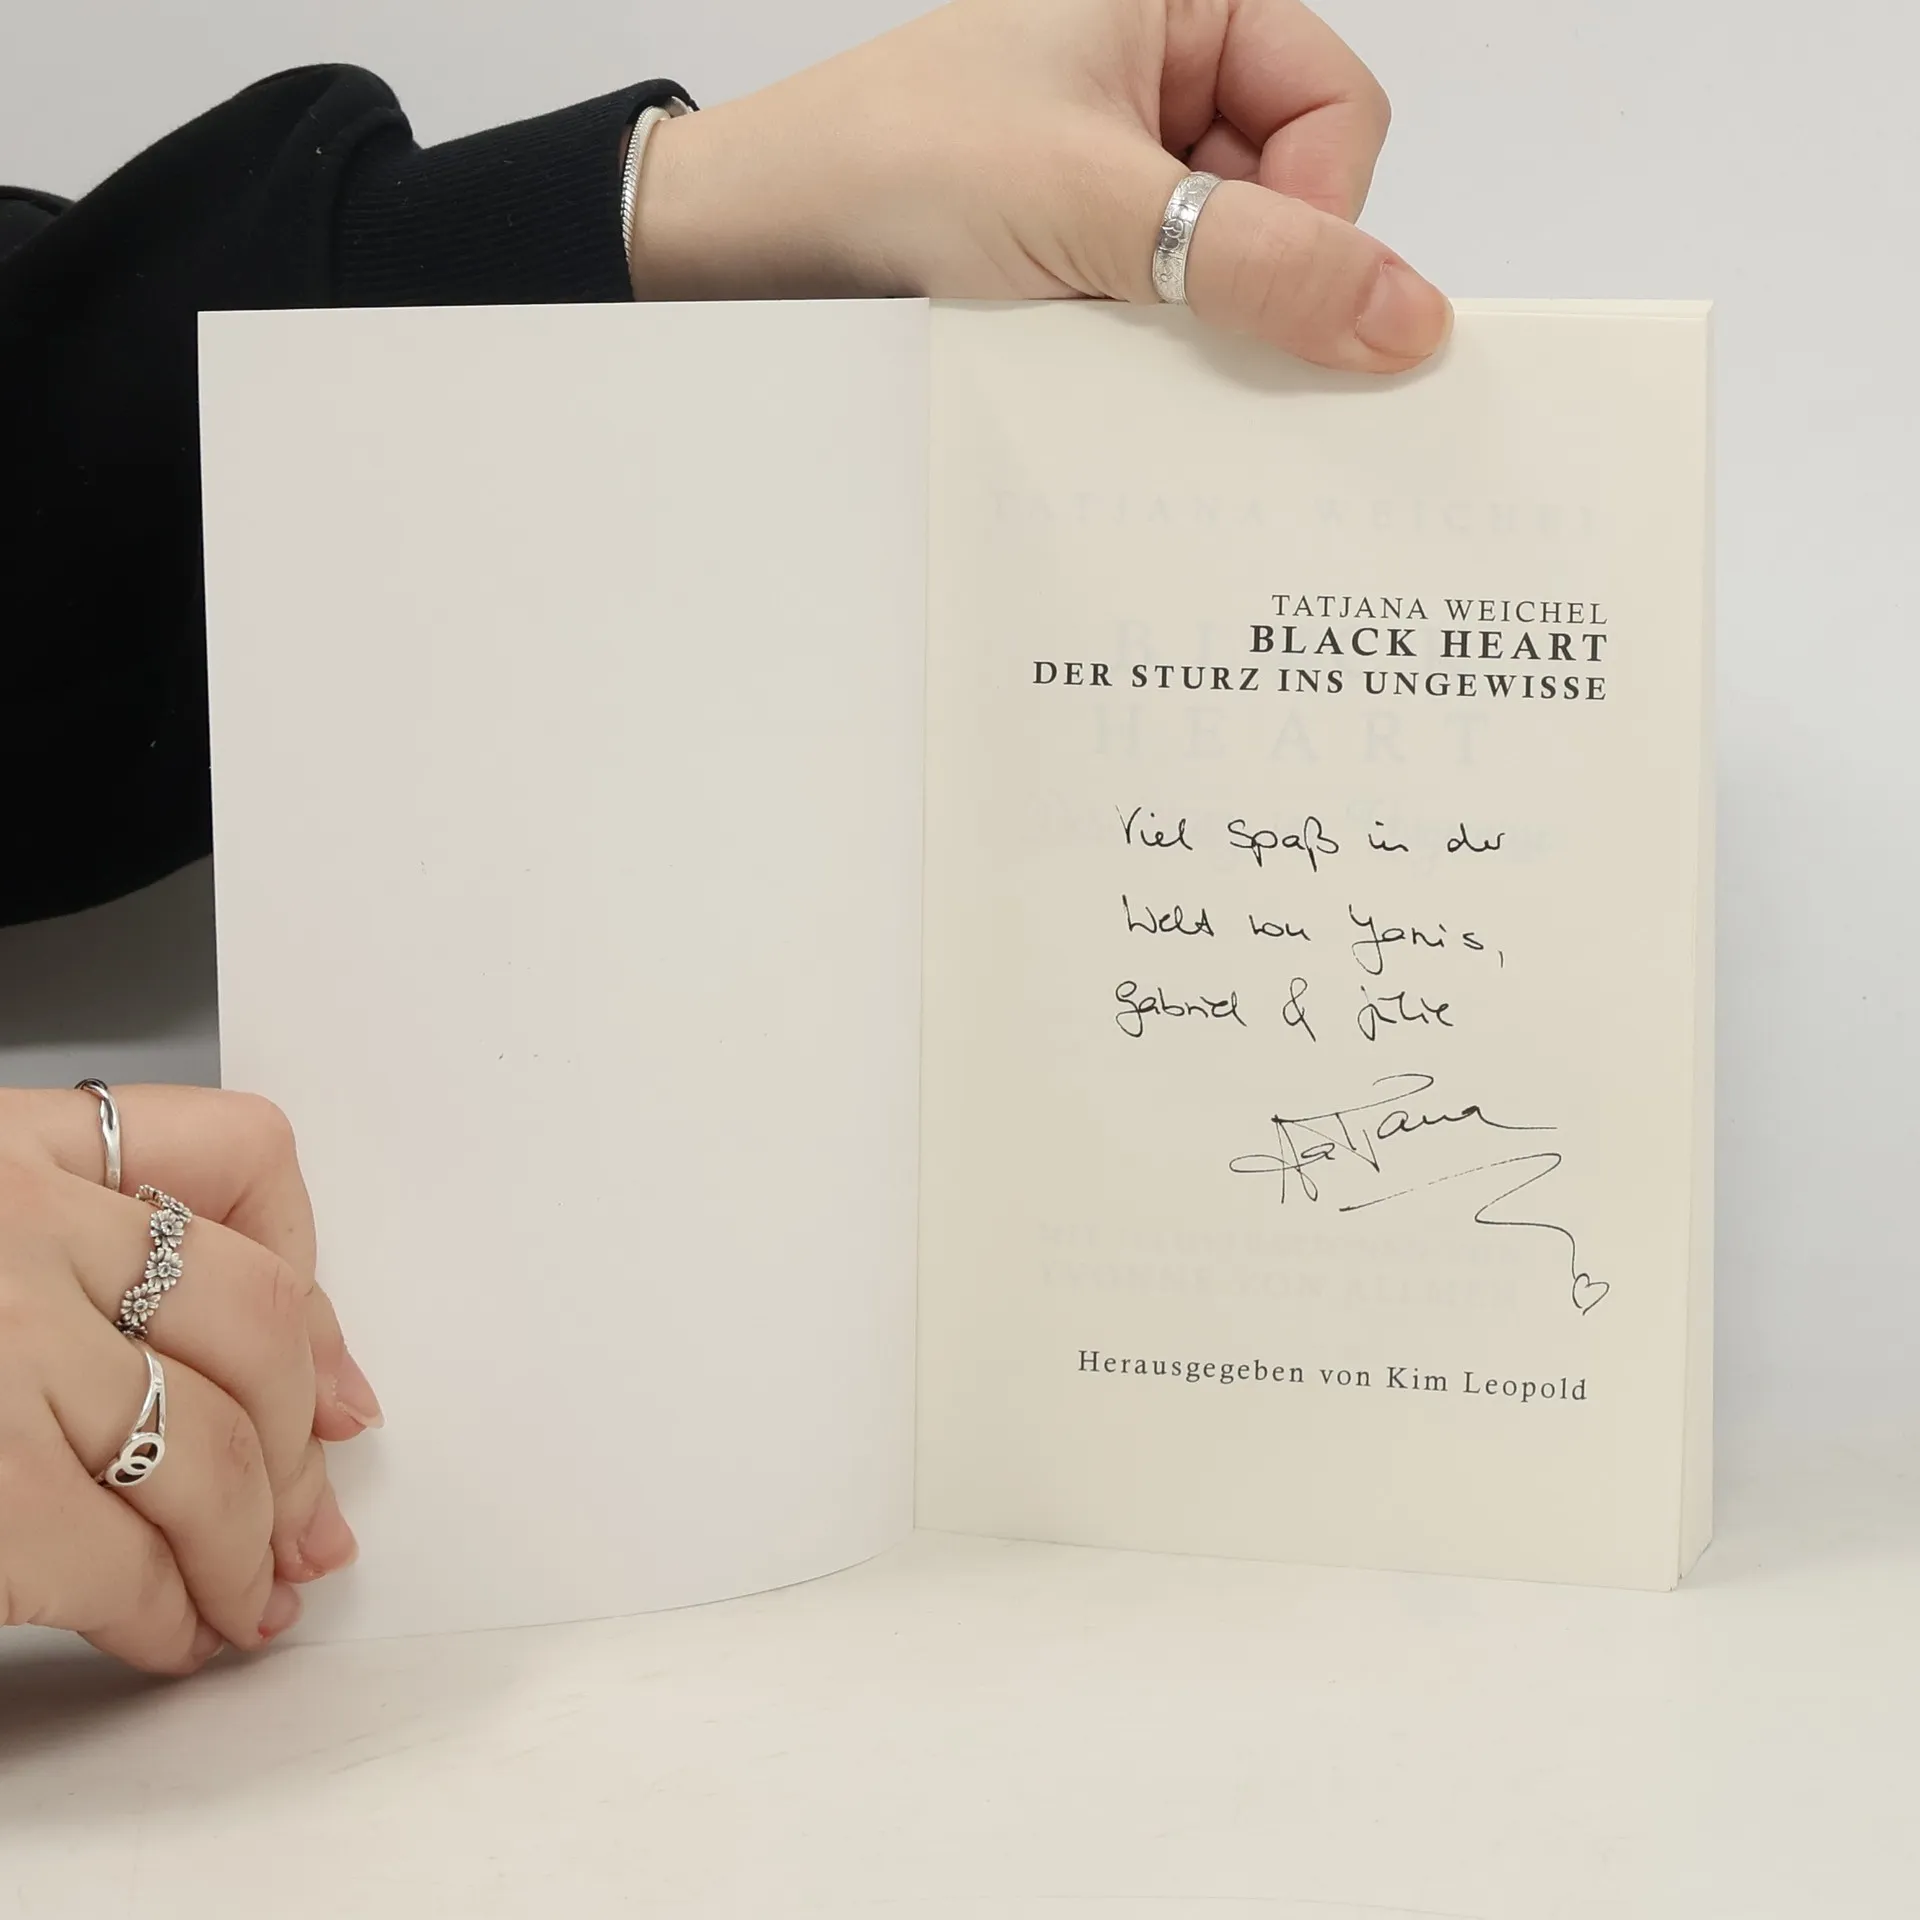 TATJANA WEICHEL
BLACK HEART
DER STURZ INS UNGEWISSE
Viel Spaß in der
Welt von Yanis,
Gabriel & Julie
Tatjana
Herausgegeben von Kim Leopold